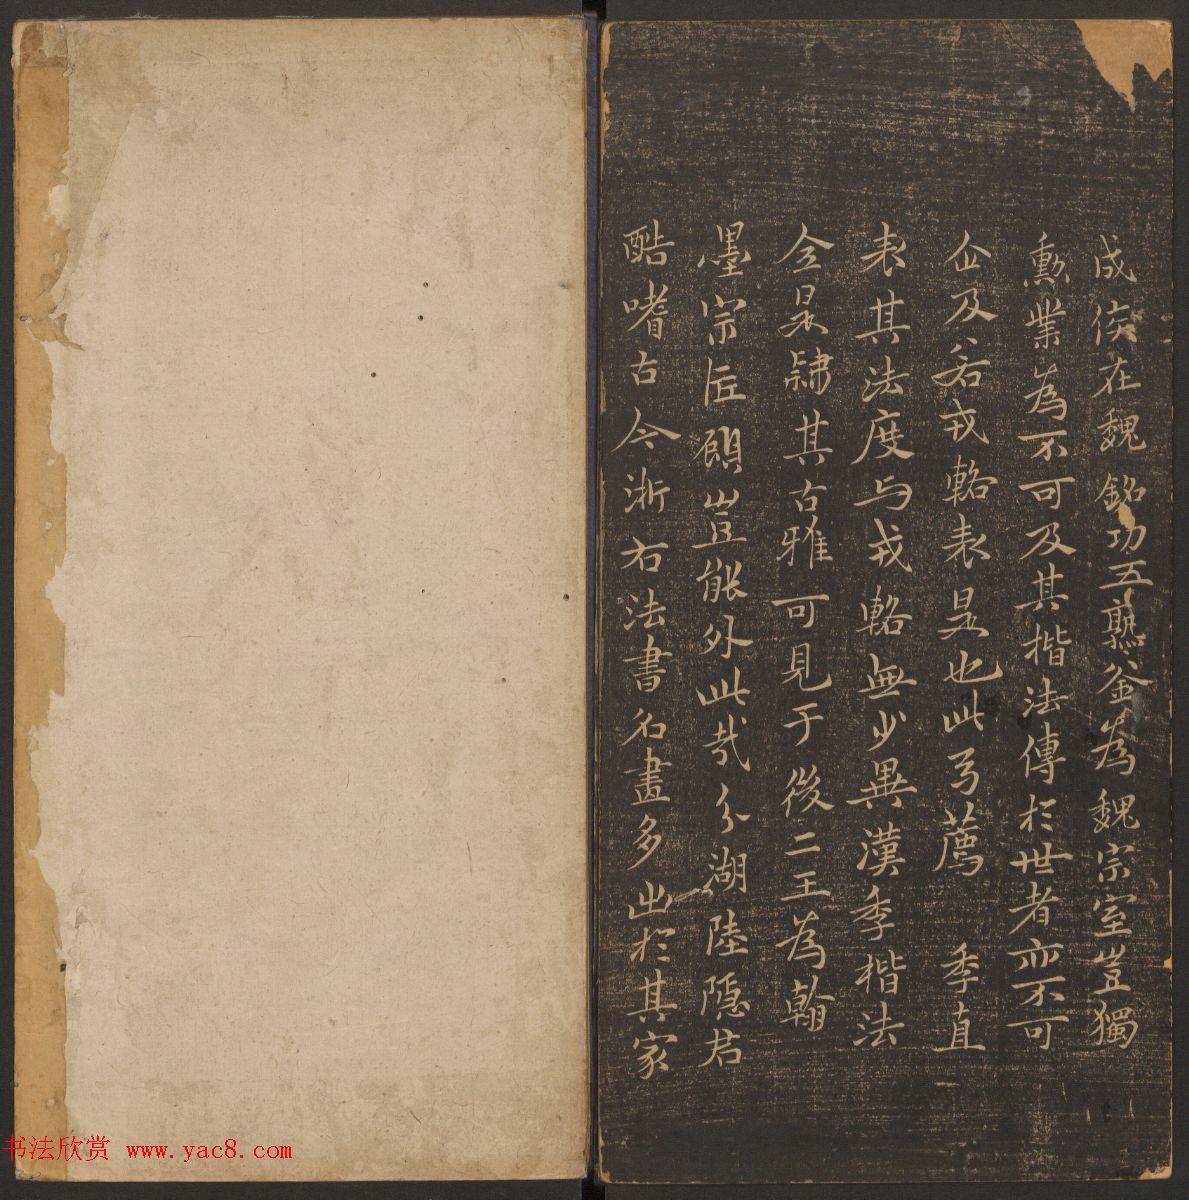 成侯在魏銘功五熟釜為魏宗室豈獨
勲業為不可及其楷法傳於世者亦不可
企及若戎輅表是也此与薦季直
表其法度与戎輅無少異漢季楷法
今是隸其古雅可見于後二王為翰
墨宗匠顧豈能外此哉分湖陸隱君
酷嗜古今浙右法書名畫多出於其家
书法欣赏 www.yac8.com